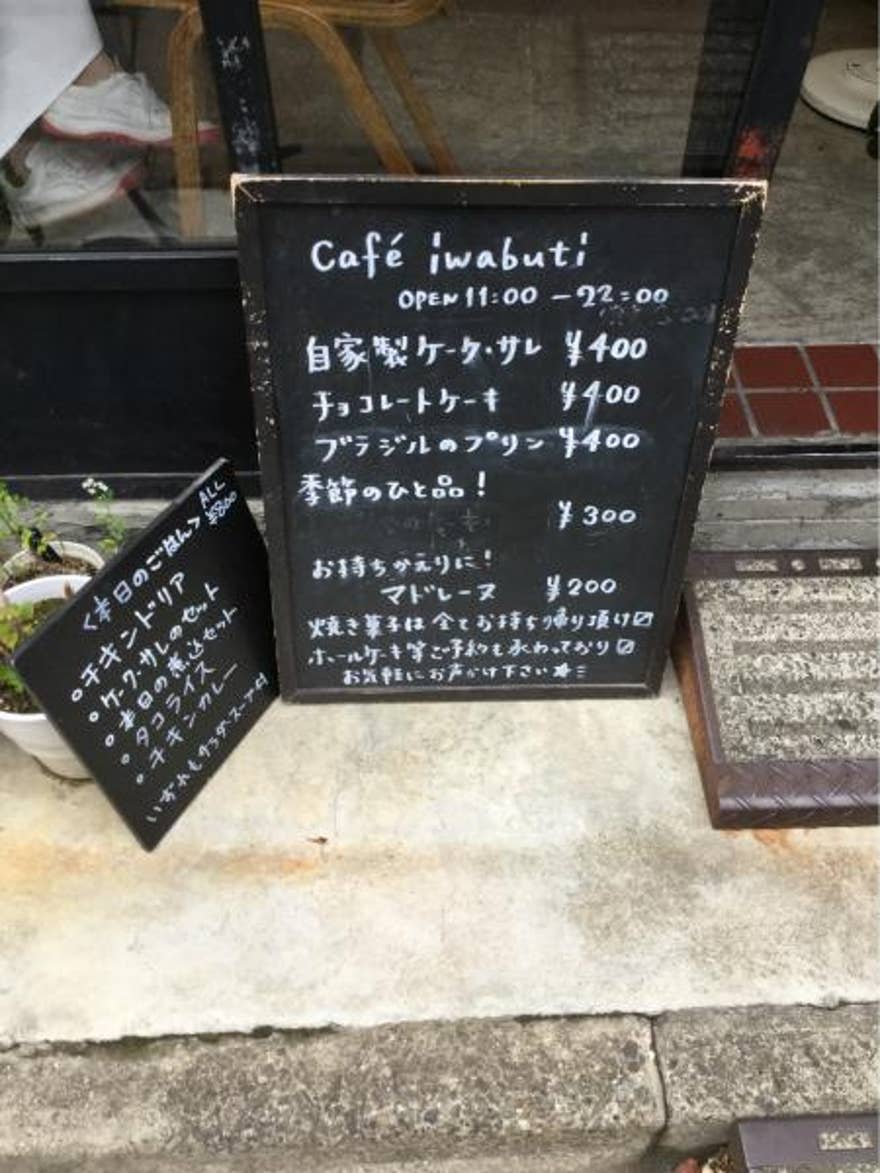 Café iwabuti
OPEN 11:00 - 22:00
自家製ケーク・サレ ¥400
チョコレートケーキ ¥400
ブラジルのプリン ¥400
季節のひと品!
¥300
お持ちかえりに!
マドレーヌ ¥200
焼き菓子は全てお持ち帰り頂け〼
ホールケーキ等ご予約も承わっており〼
お気軽にお声かけ下さい★
<本日のごはん> ALL ¥800
○チキンドリア
○ケーク・サレのセット
○本日の煮込セット
○タコライス
○チキンカレー
いずれもサラダ・スープ付